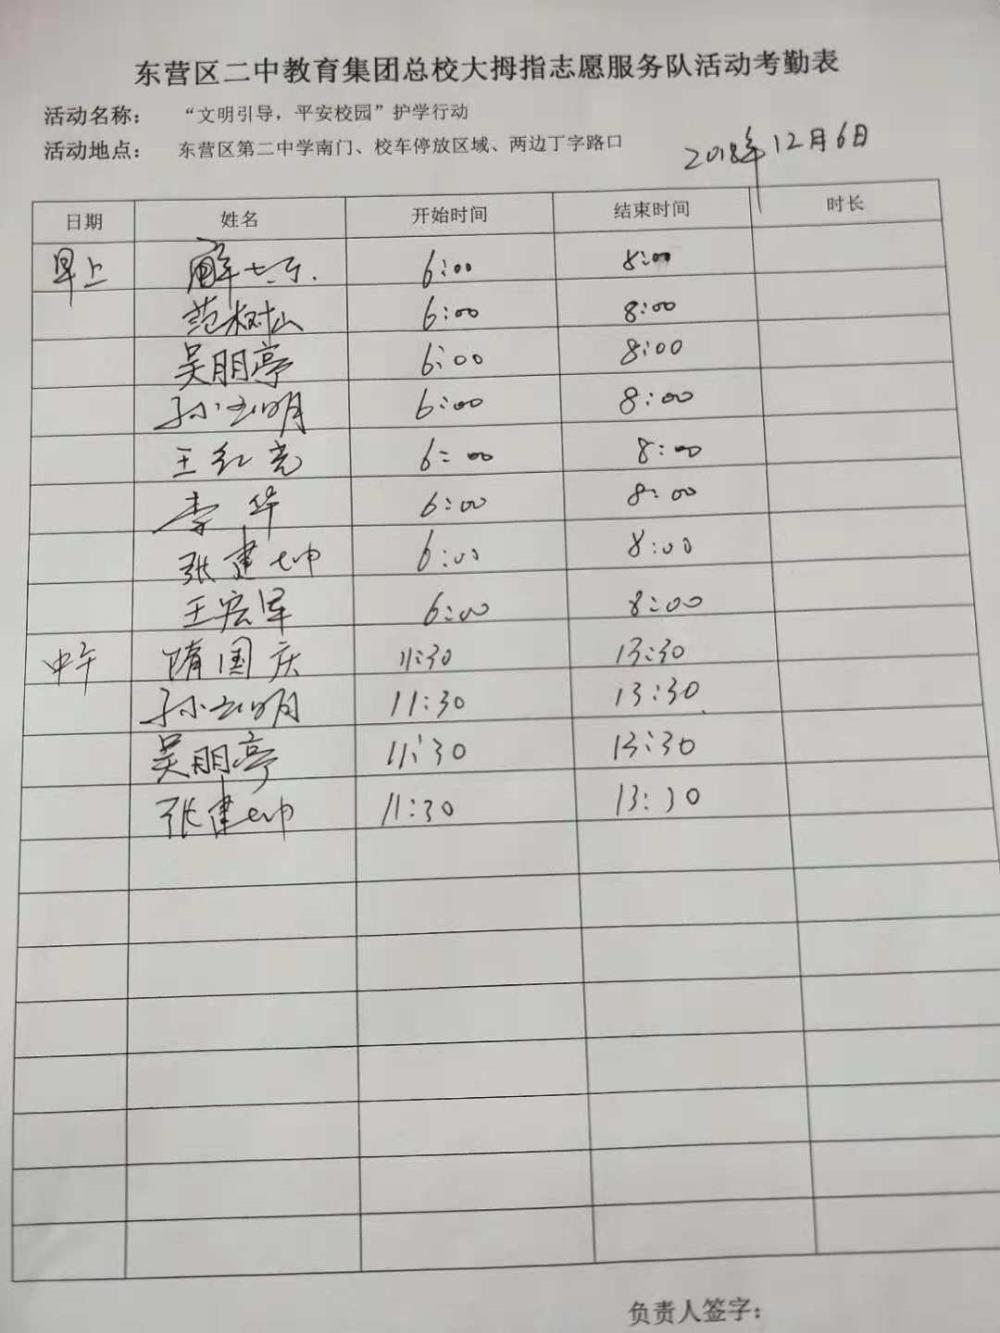 东营区二中教育集团总校大拇指志愿服务队活动考勤表
活动名称： “文明引导，平安校园”护学行动
活动地点： 东营区第二中学南门、校车停放区域、两边丁字路口
2018年12月6日
日期 姓名 开始时间 结束时间 时长
早上 6:00 8:00
范树山 6:00 8:00
吴朋亭 6:00 8:00
孙立明 6:00 8:00
王红亮 6:00 8:00
李华 6:00 8:00
张建坤 6:00 8:00
王宏军 6:00 8:00
中午 隋国庆 11:30 13:30
孙立明 11:30 13:30
吴朋亭 11:30 13:30
张建坤 11:30 13:30
负责人签字：